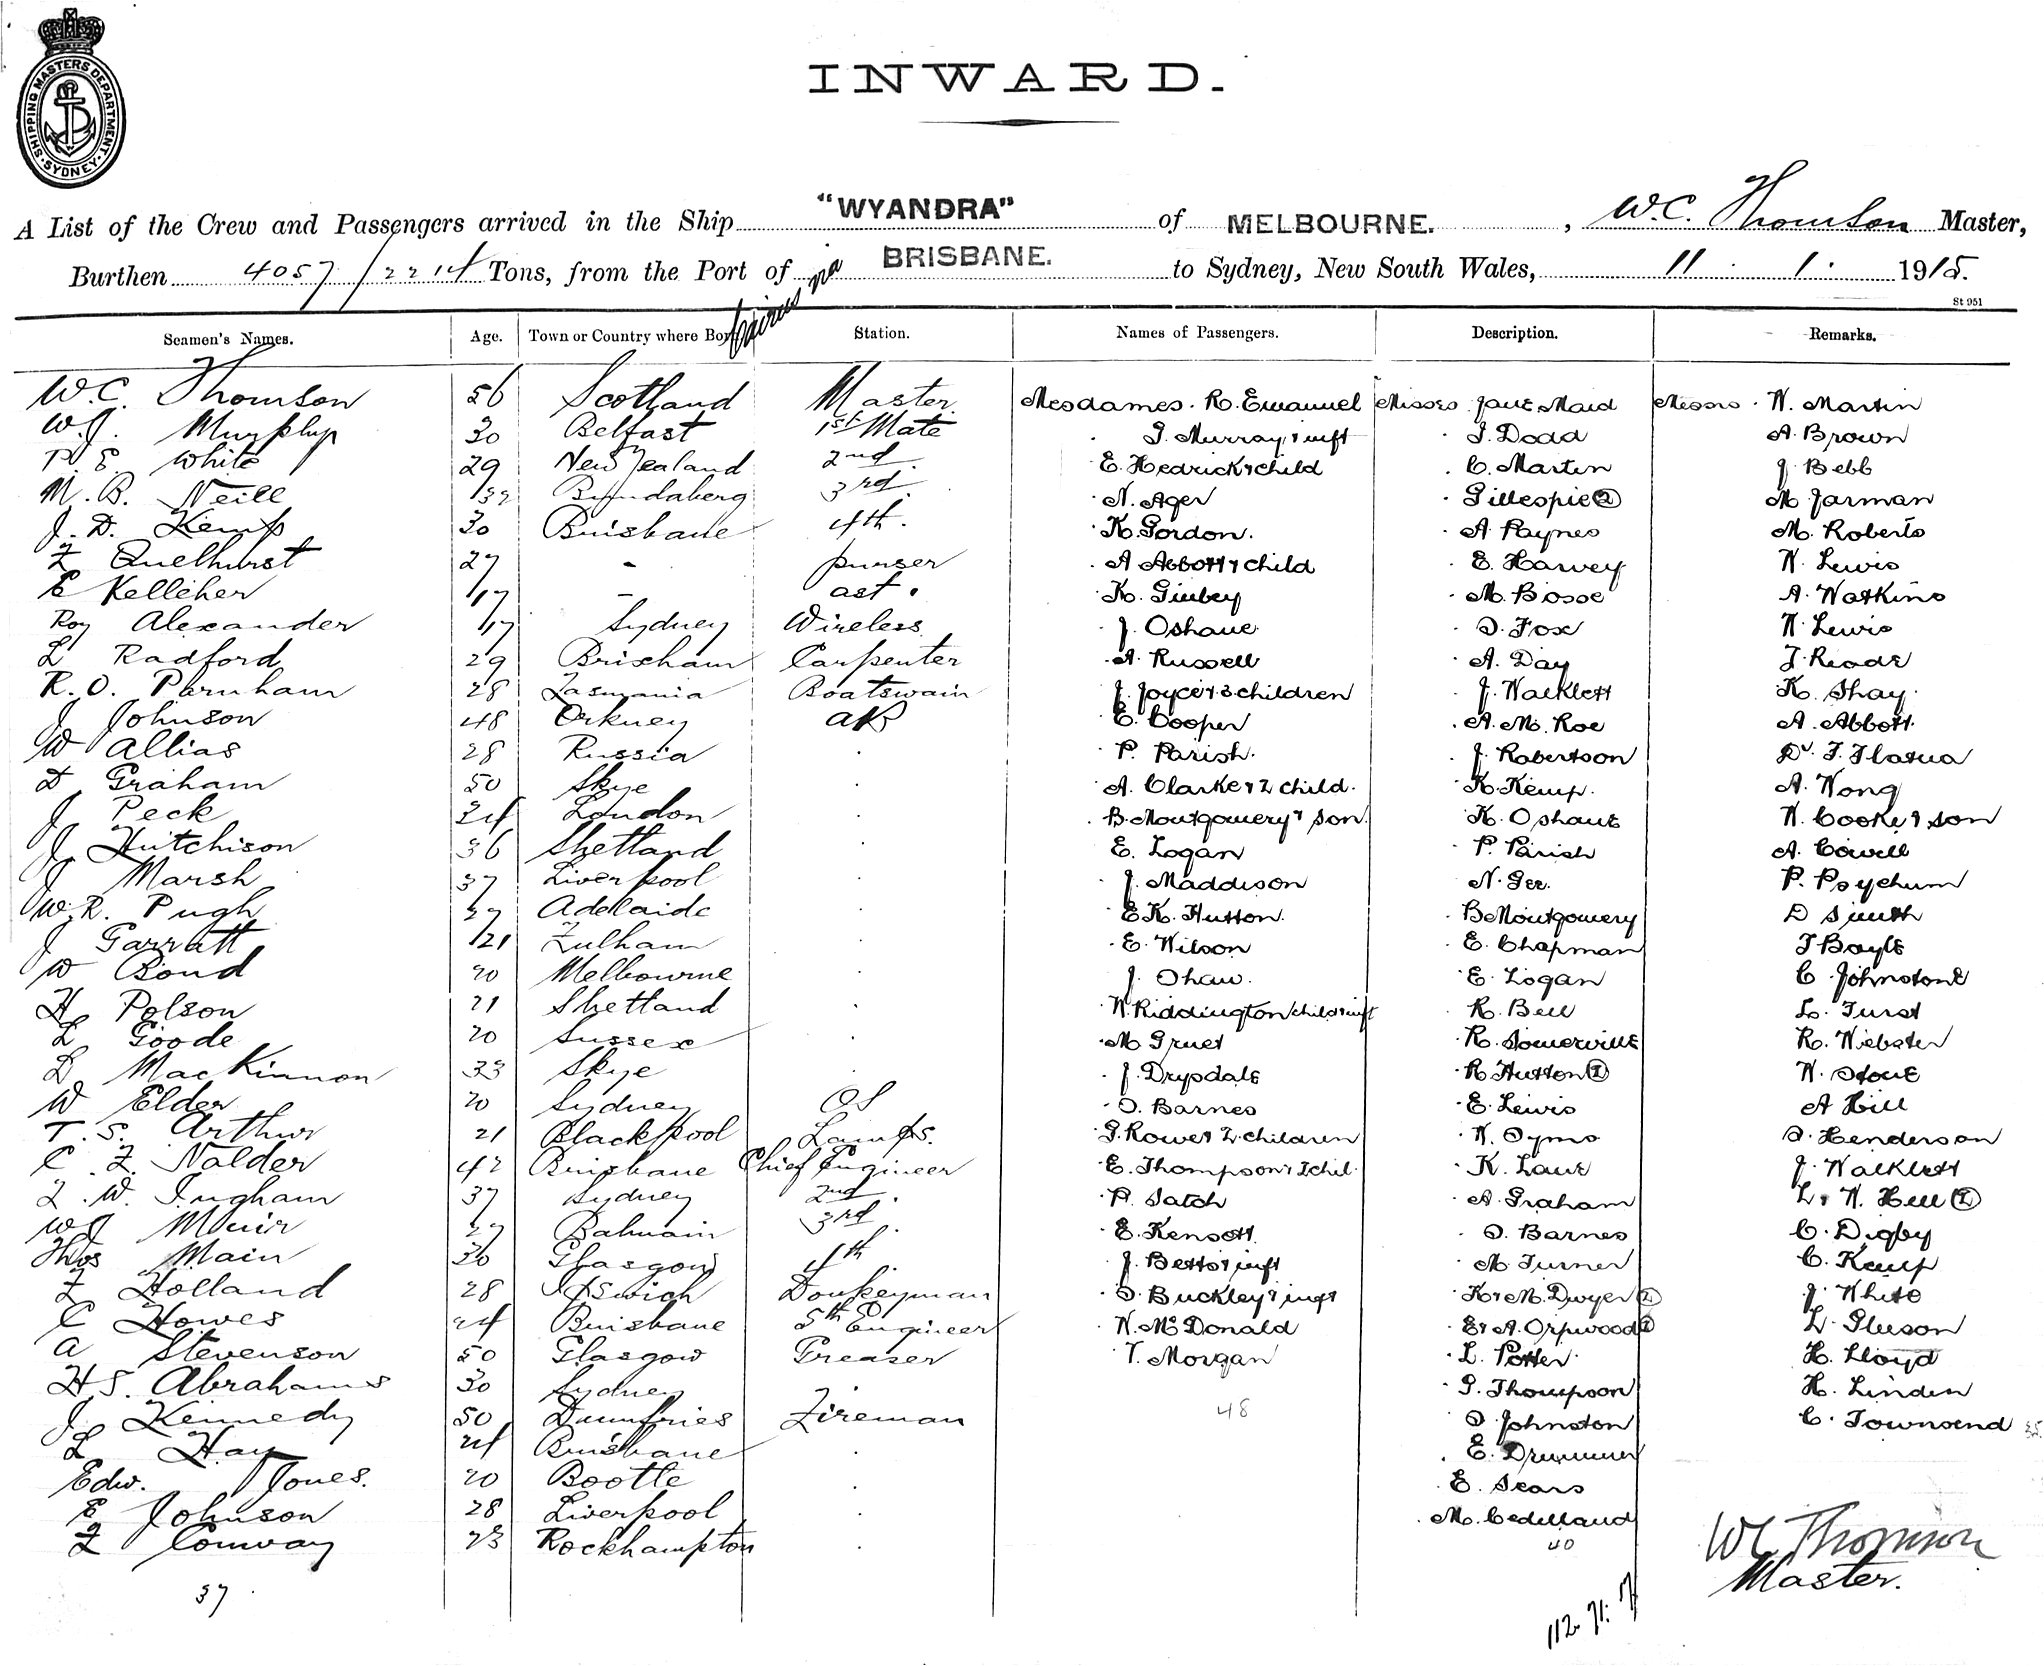 SHIPPING MASTERS DEPARTMENT. SYDNEY.
INWARD.
A List of the Crew and Passengers arrived in the Ship "WYANDRA" of MELBOURNE. , W.C. Thomson Master,
Burthen 4057/2214 Tons, from the Port of Cairns via BRISBANE. to Sydney, New South Wales, 11 . 1 . 1915.
St 951
Seamen's Names. Age. Town or Country where Born Station. Names of Passengers. Description. Remarks.
W.C. Thomson 56 Scotland Master Mesdames. R. Emanuel Misses Jane Maid Messrs. W. Martin
W.J. Murphy 30 Belfast 1st Mate G. Murray & inft J. Dodd A. Brown
P. E. White 29 New Zealand 2nd E. Hedrick & child C. Martin J Bebb
M. B. Neill 32 Bundaberg 3rd N. Ager Gillespie (2) M Jarman
J. D. Kemp 30 Brisbane 4th. K. Gordon. A Paynes M. Roberts
F Quelhurst 27 - purser A Abbott & child E. Harvey W. Lewis
E Kelleher 17 - ast. K. Ginbey M. Bosse A. Watkins
Roy Alexander 17 Sydney Wireless J. Oshane S. Fox W Lewis
L Radford 29 Brixham Carpenter A. Russell A. Day J. Reade
R. O. Parnham 28 Tasmania Boatswain J. Joyce & 3 children J. Walklett K. Shay.
J Johnson 48 Orkney AB E. Cooper A. M. Roe A. Abbott.
W Allias 28 Russia . P. Parish. J. Robertson Dr. T. Flatua
D Graham 50 Skye . A. Clarke & 2 child. K. Kemp. A. Wong
J Peck 24 London . B. Montgomery & son. K. Oshane W. Cooke & son
J Hutchison 36 Shetland . E. Logan P. Parish A. Cowell
J Marsh 37 Liverpool . J. Maddison N. Gee. P. Psychum
W.R. Pugh 27 Adelaide . E K. Hutton. B Montgomery D Smith
J Garratt 21 Fulham . E. Wilson E. Chapman T Boyle
W Bond 20 Melbourne . J. Shaw. E. Logan C Johnstone
H Polson 21 Shetland . W. Riddington child & inft R. Bell L. Furst
L Goode 20 Sussex . M Gruet R. Somerville R. Webster
D MacKinnon 33 Skye . J. Drysdale R Hutton (2) W. Stone
W Elder 20 Sydney OS S. Barnes E. Lewis A Hill
T. S. Arthur 21 Blackpool Lamps. G. Rowe & 2 children W. Syms S. Henderson
C. F. Nalder 42 Brisbane Chief Engineer E. Thompson & 2 chil. K. Lane J. Walklett
F. W. Ingham 37 Sydney 2nd. P. Satch A. Graham L & W. Hill (2)
W J Muir 27 Balmain 3rd. E. Kensott S. Barnes C. Digby
Thos Main 30 Glasgow 4th. J. Betts & inft M. Turner C. Kemp
F Holland 28 Ipswich Donkeyman S. Buckley & inft K & M. Dwyer (2) J. White
C Howes 24 Brisbane 5th Engineer W. McDonald E & A. Orpwood (2) L. Gleeson
A Stevenson 50 Glasgow Greaser T. Morgan L. Potter. H. Lloyd
H S. Abrahams 30 Sydney G. Thompson H. Linden
J. Kennedy 50 Dumfries Fireman 48 S Johnston C. Townsend 35
L Hay 24 Brisbane . E. Drummer
Edw. Jones. 20 Bootle . E. Sears
E Johnson 28 Liverpool . M. Cedelland
F Conway 23 Rockhampton . 40
W C Thomson
Master.
37
112. 71. 7